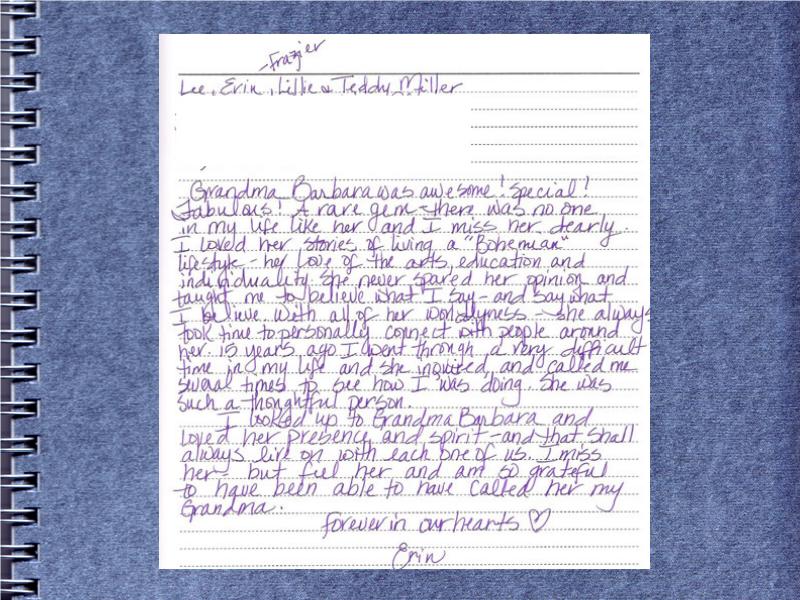 -Frazier
Lee, Erin, Lillie & Teddy Miller
Grandma Barbara was awesome! Special!
Fabulous! A rare gem - there was no one
in my life like her and I miss her dearly.
I loved her stories of living a "Bohemian"
lifestyle - her love of the arts, education and
individuality. She never spared her opinion and
taught me to believe what I say - and say what
I believe. With all of her worldlyness - she always
took time to personally connect with people around
her. 15 years ago I went through a very difficult
time in my life and she invited, and called me
several times to see how I was doing. She was
such a thoughtful person.
I looked up to Grandma Barbara and
loved her presence and spirit - and that shall
always live on with each one of us. I miss
her - but feel her and am so grateful
to have been able to have called her my
Grandma.
forever in our hearts ♡
Erin